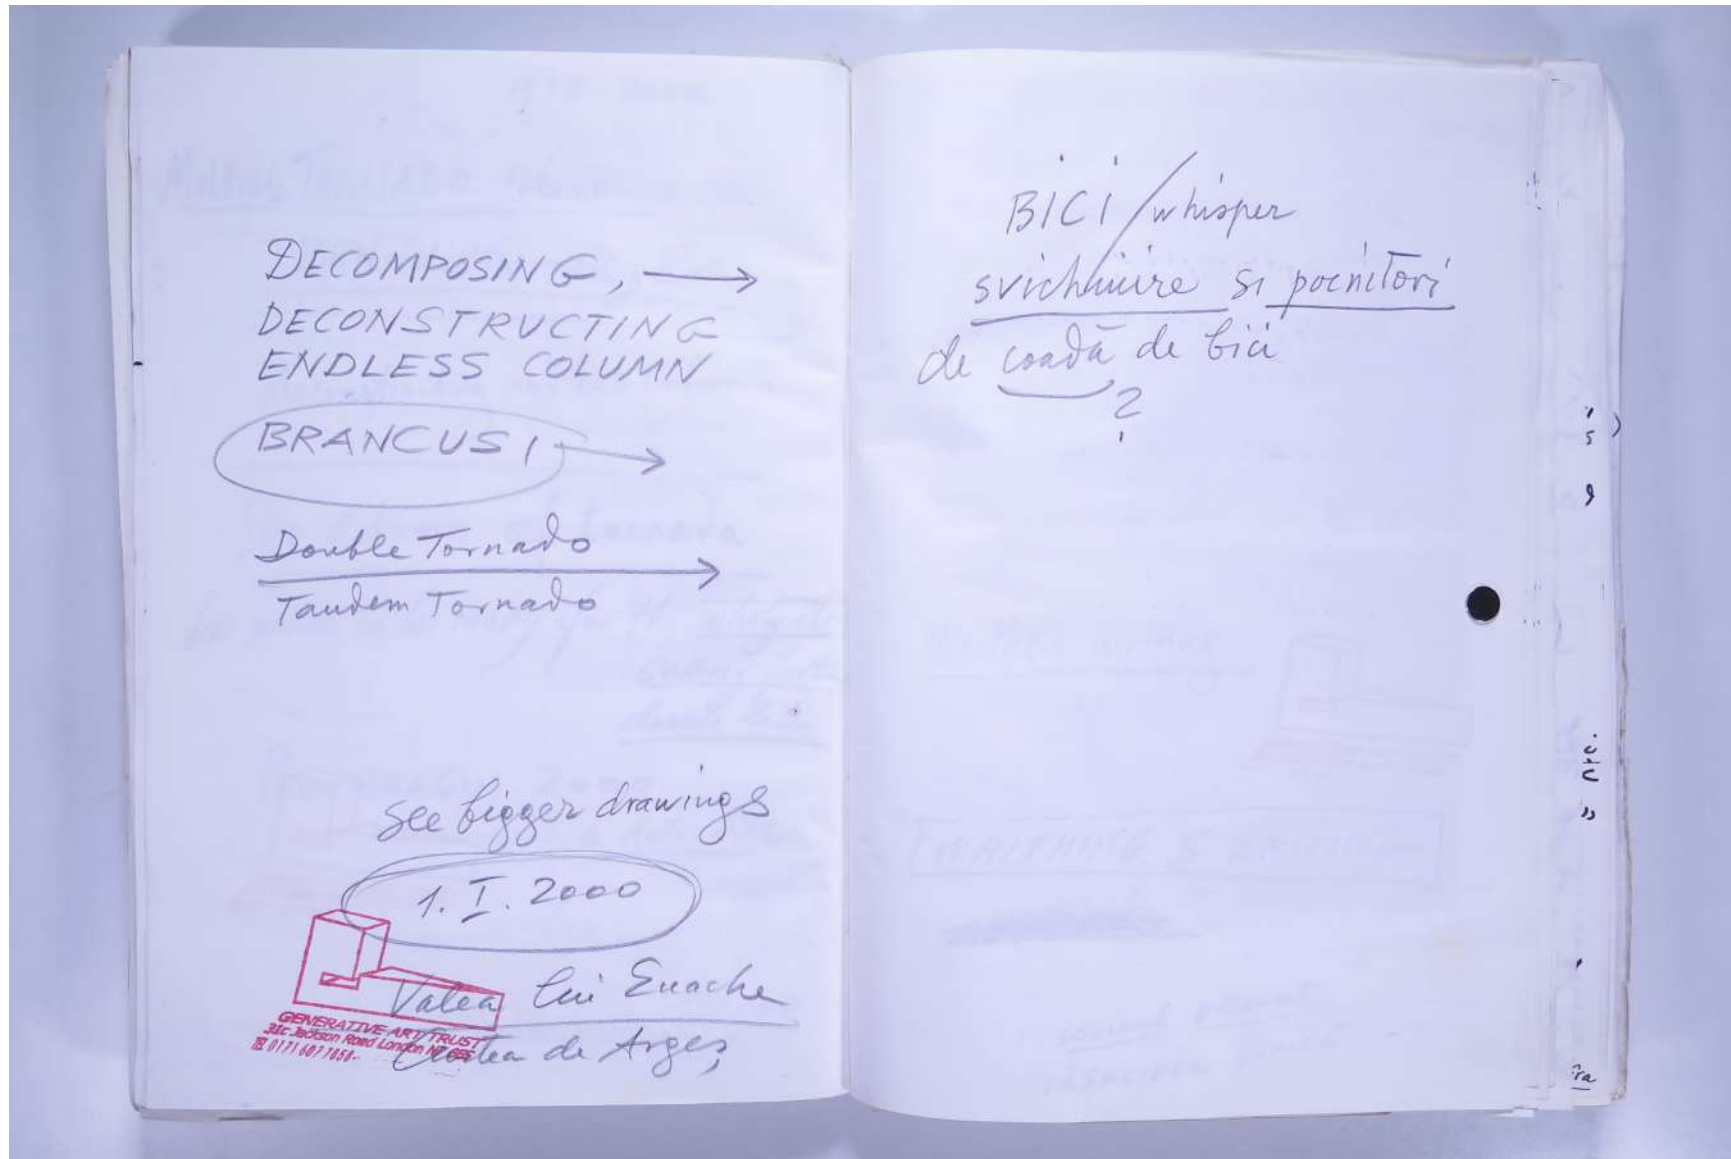 DECOMPOSING, →
DECONSTRUCTING
ENDLESS COLUMN
BRANCUSI →
Double Tornado
Tandem Tornado
see bigger drawings
1. I. 2000
Valea lui Enache
Curtea de Argeș
GENERATIVE ART TRUST
31c Jackson Road London N7 6ES
0171 607 7858
BICI / whisper
svichnuire si pocnitori
de coadă de bici
?